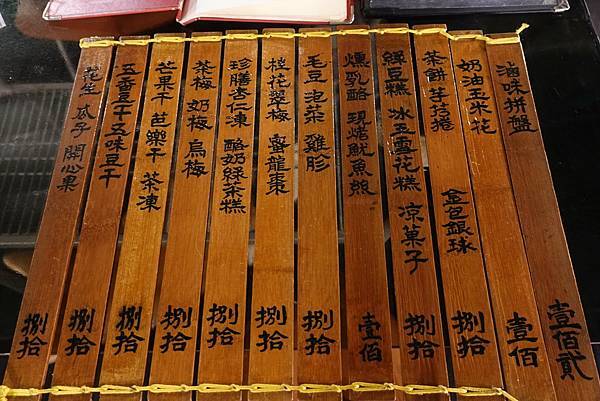 滷味拼盤 壹佰貳
奶油玉米花 壹佰
茶餅芋荷捲 金包銀球 捌拾
綠豆糕 冰玉雪花糕 凉菓子 捌拾
燻乳酪 現烤魷魚絲 壹佰
毛豆 泡菜 雞胗 捌拾
桂花翠梅 喜龍棗 捌拾
珍膳杏仁凍 酪奶綠茶糕 捌拾
茶梅 奶梅 烏梅 捌拾
芒果干 芭樂干 茶凍 捌拾
五香豆干 五味豆干 捌拾
花生 瓜子 開心果 捌拾